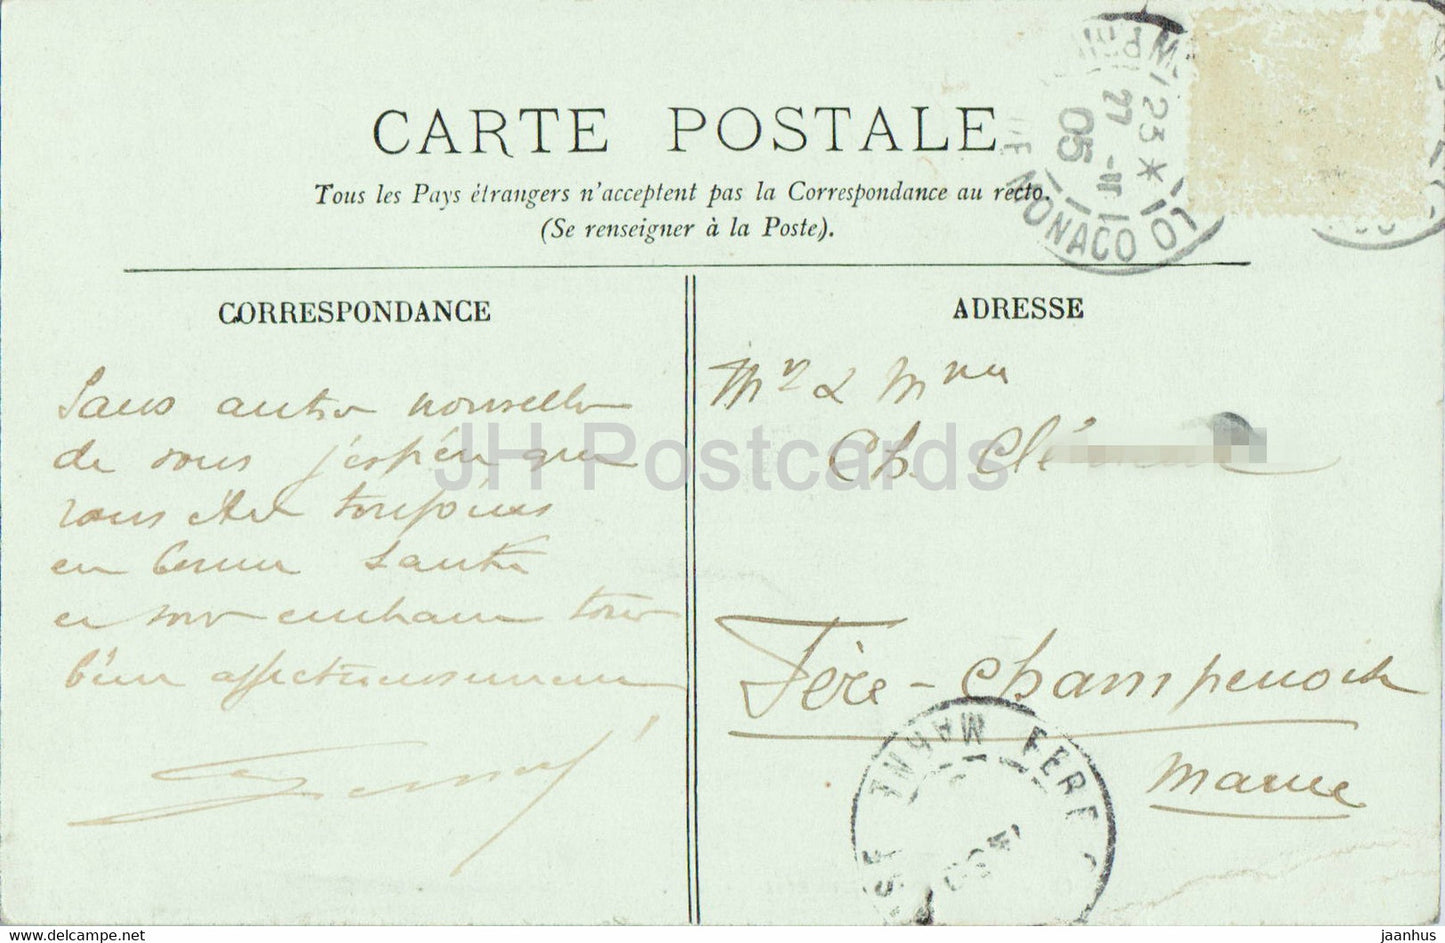 CARTE POSTALE
Tous les Pays étrangers n'acceptent pas la Correspondance au recto.
(Se renseigner à la Poste).
CORRESPONDANCE
ADRESSE
Sans autre nouvelle
de vous j'espère que
vous êtes toujours
en bonne santé
bien affectueusement
Mr & Mme
Ch. Clé
Fère-Champenoise
Marne
MONACO
23 * 10
27
05
MARNE FERE C
JH Postcards
www.delcampe.net
jaanhus